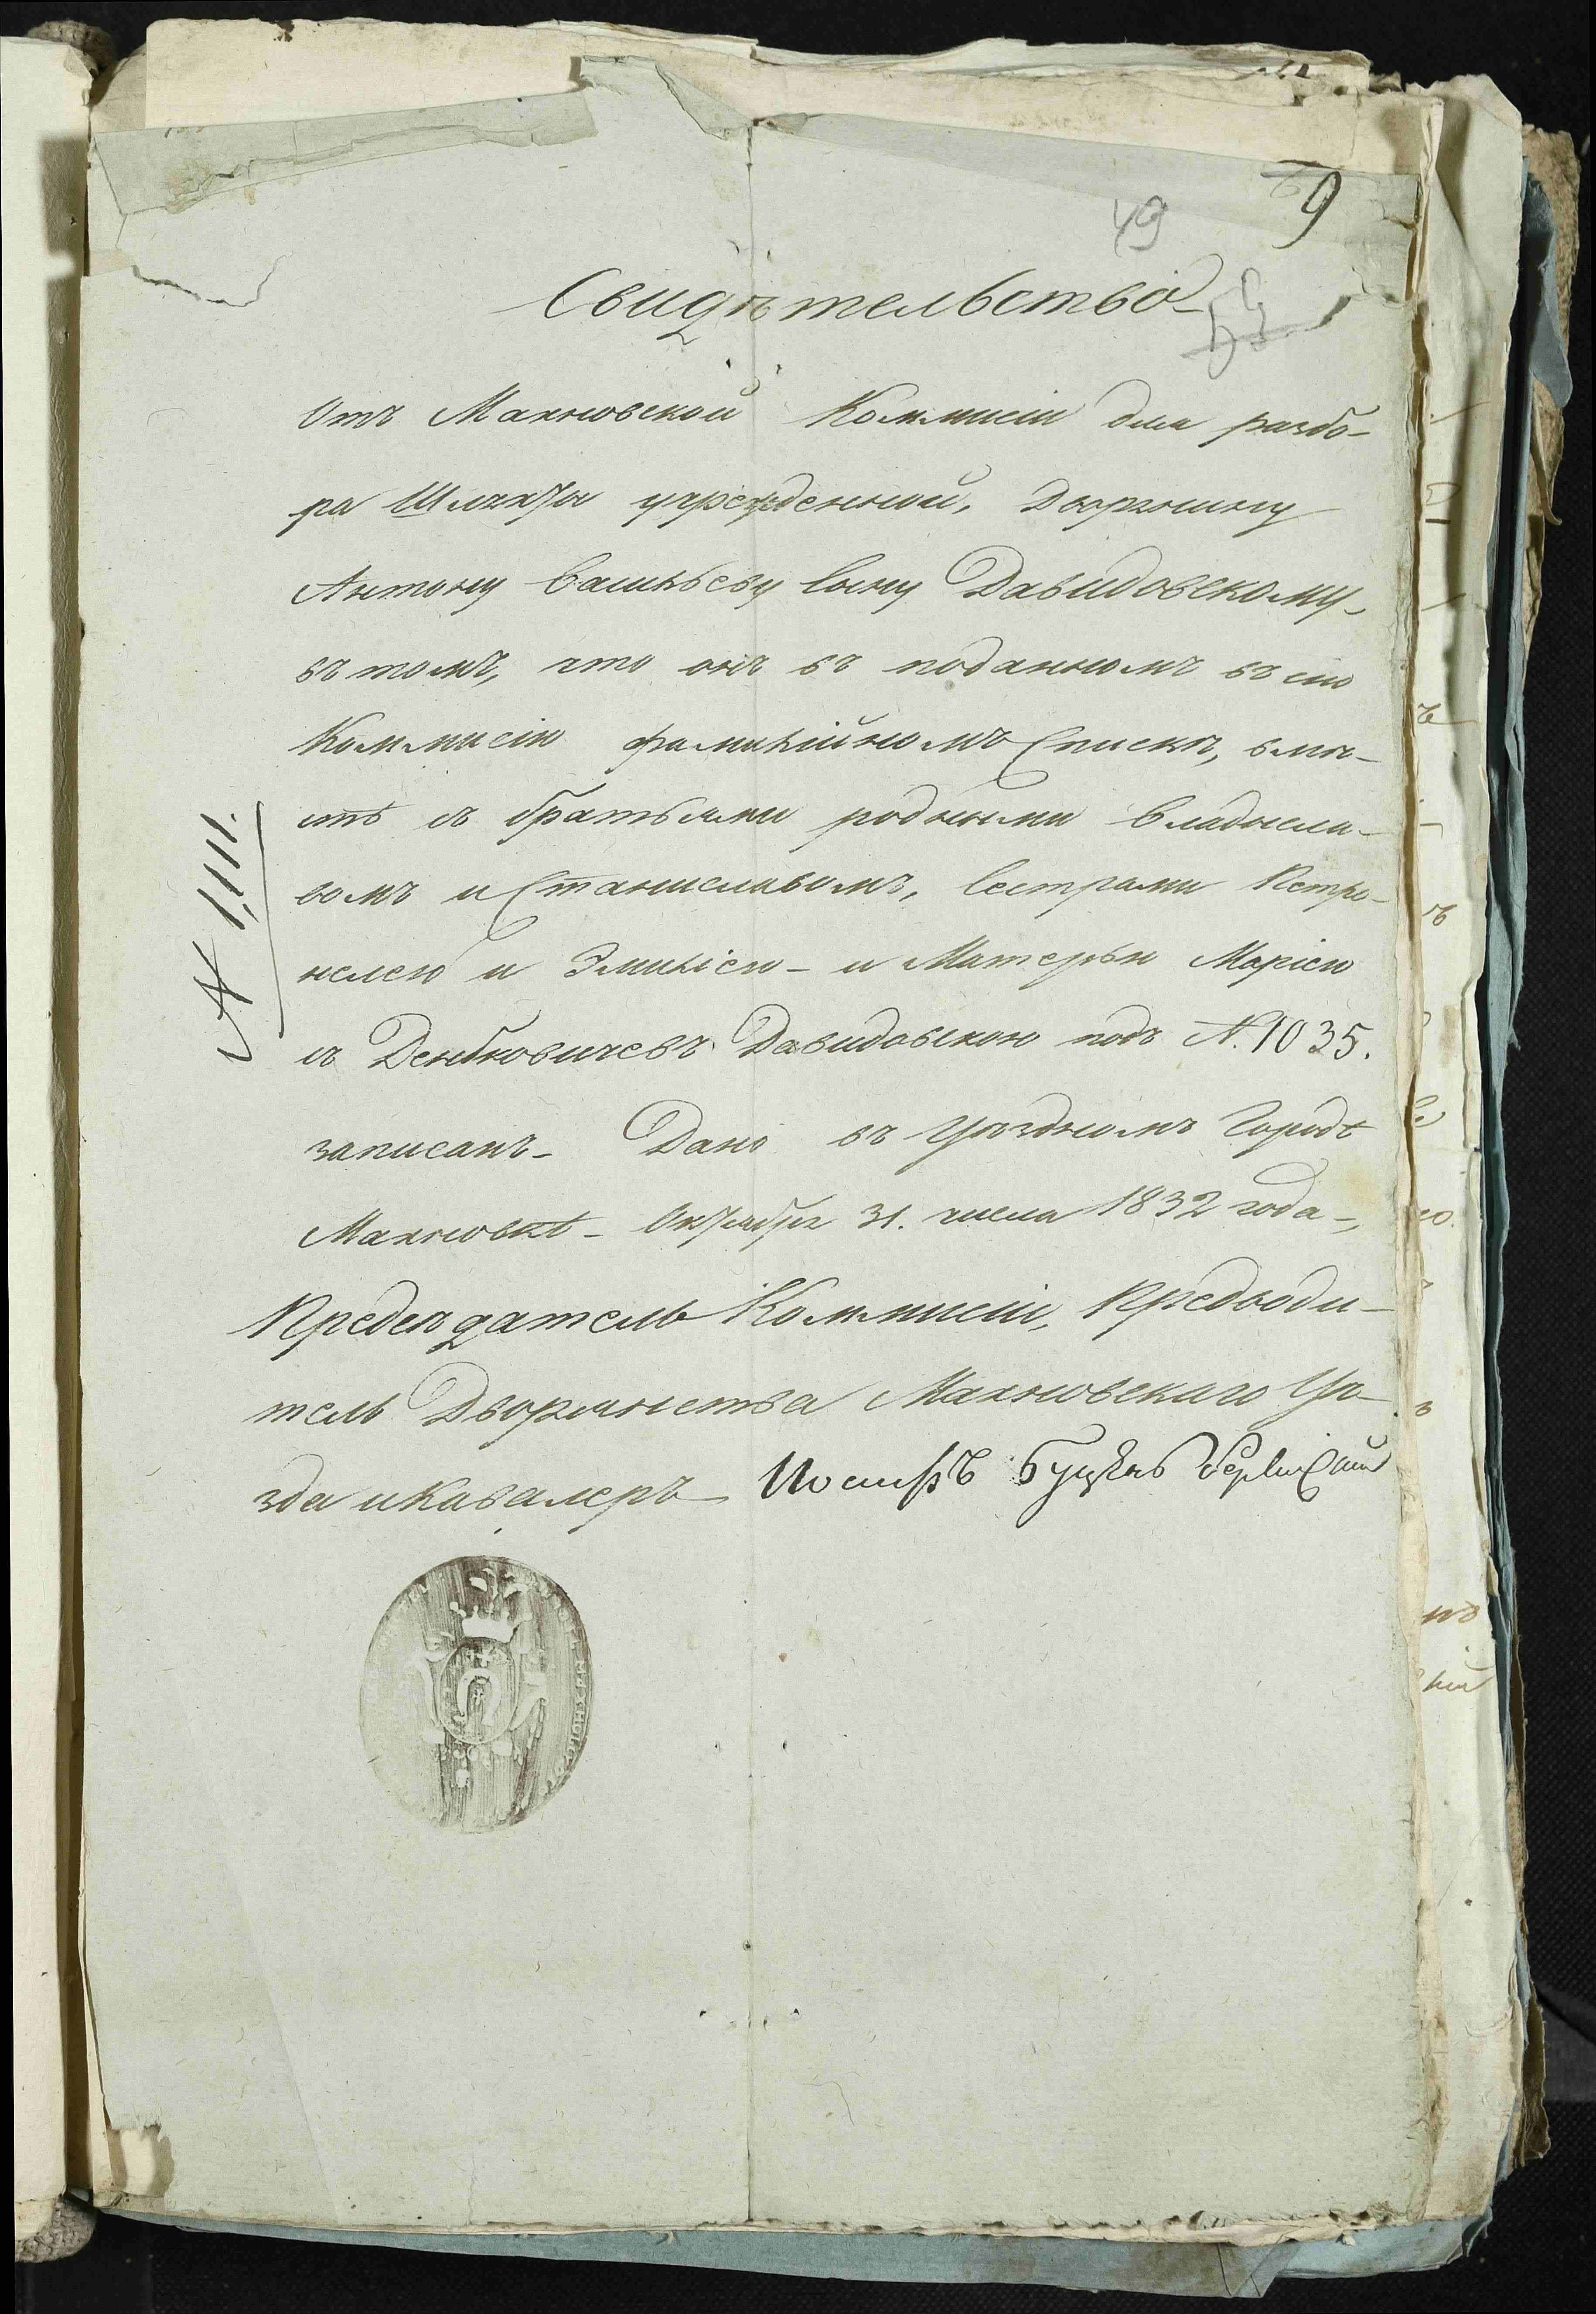 9
49
Свидѣтельство
Отъ Махновской Коммисіи для разбо-
ра Шляхты учрежденной, Дворянину
Антону Васильеву Сыну Давидовскому,
въ томъ, что онъ въ поданномъ въ сію
Коммисію фамилійномъ Спискѣ, вмѣ-
стѣ съ братьями родными Владисла-
вомъ и Станиславомъ, Сестрами Петро-
нелею и Эмиліею - и Матерью Маріею
съ Денбновичевъ Давидовскою подъ N. 1035.
записанъ - Дано въ Уѣздномъ Городѣ
Махновкѣ - Октября 31. числа 1832 года -,
Предсѣдатель Коммисіи, Предводи-
тель Дворянства Махновскаго Уѣ-
зда и Кавалеръ Иосифъ
N 1,111.